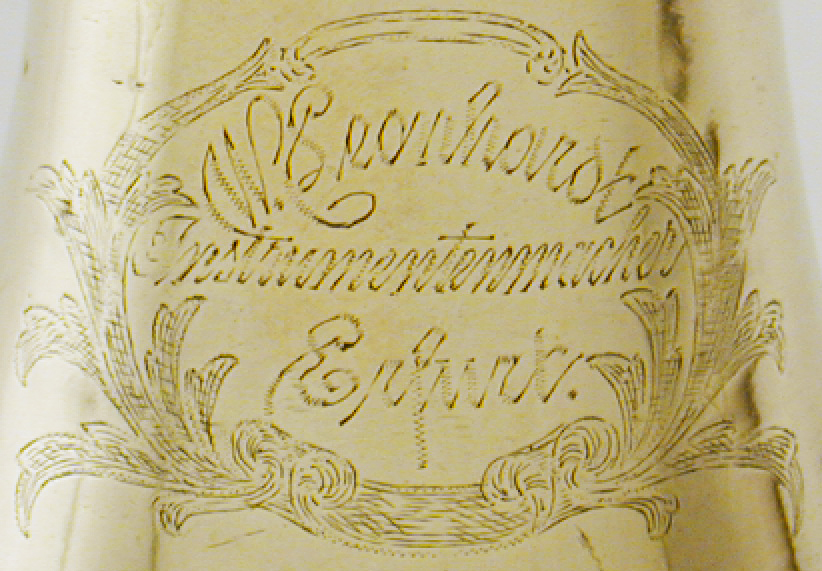 W. Leonhardt
Instrumentenmacher
Erfurt.